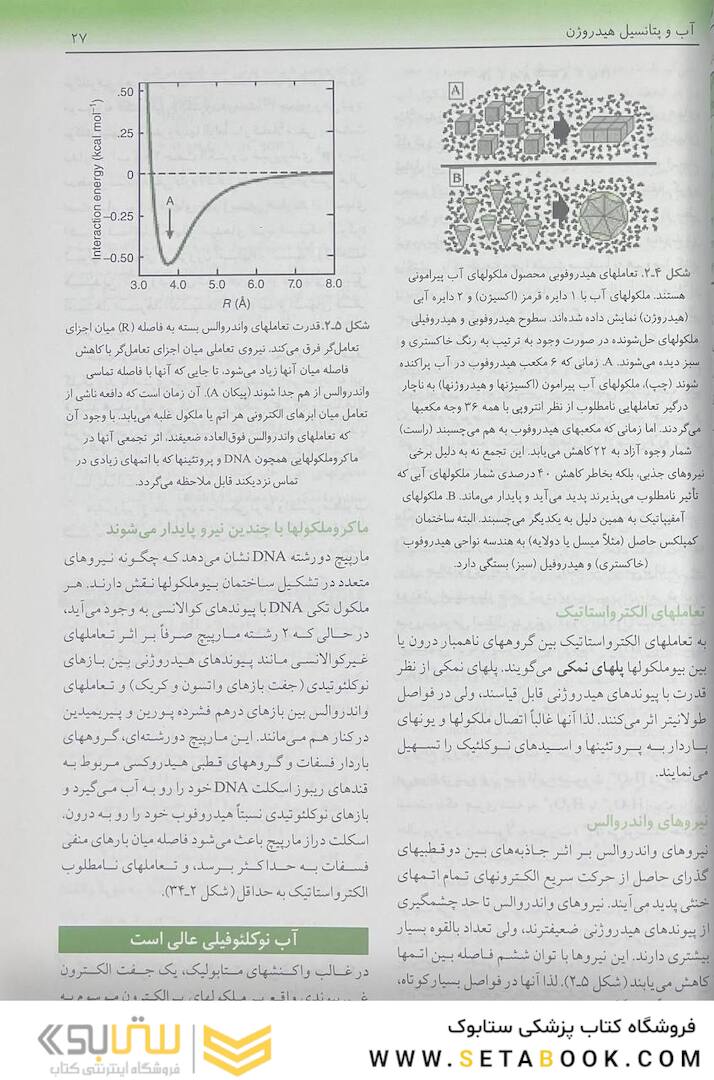 آب و پتانسیل هیدروژن
۲۷
A
B
شکل ۴ـ۲. تعاملهای هیدروفوبی محصول ملکولهای آب پیرامونی
هستند. ملکولهای آب با ۱ دایره قرمز (اکسیژن) و ۲ دایره آبی
(هیدروژن) نمایش داده شده‌اند. سطوح هیدروفوبی و هیدروفیلی
ملکولهای حل‌شونده در صورت وجود به ترتیب به رنگ خاکستری و
سبز دیده می‌شوند. A. زمانی که ۶ مکعب هیدروفوب در آب پراکنده
شوند (چپ)، ملکولهای آب پیرامون (اکسیژنها و هیدروژنها) به ناچار
درگیر تعاملهایی نامطلوب از نظر انتروپی با همه ۳۶ وجه مکعبها
می‌گردند. اما زمانی که مکعبهای هیدروفوب به هم می‌چسبند (راست)
شمار وجوه آزاد به ۲۲ کاهش می‌یابد. این تجمع نه به دلیل برخی
نیروهای جذبی، بلکه بخاطر کاهش ۴۰ درصدی شمار ملکولهای آبی که
تأثیر نامطلوب می‌پذیرند پدید می‌آید و پایدار می‌ماند. B. ملکولهای
آمفیپاتیک به همین دلیل به یکدیگر می‌چسبند. البته ساختمان
کمپلکس حاصل (مثلاً میسل یا دولایه) به هندسه نواحی هیدروفوب
(خاکستری) و هیدروفیل (سبز) بستگی دارد.
تعاملهای الکترواستاتیک
به تعاملهای الکترواستاتیک بین گروههای ناهمبار درون یا
بین بیوملکولها پلهای نمکی می‌گویند. پلهای نمکی از نظر
قدرت با پیوندهای هیدروژنی قابل قیاسند، ولی در فواصل
طولانیتر اثر می‌کنند. لذا آنها غالباً اتصال ملکولها و یونهای
باردار به پروتئینها و اسیدهای نوکلئیک را تسهیل
می‌نمایند.
نیروهای واندروالس
نیروهای واندروالس بر اثر جاذبه‌های بین دوقطبیهای
گذرای حاصل از حرکت سریع الکترونهای تمام اتمهای
خنثی پدید می‌آیند. نیروهای واندروالس تا حد چشمگیری
از پیوندهای هیدروژنی ضعیفترند، ولی تعداد بالقوه بسیار
بیشتری دارند. این نیروها با توان ششم فاصله بین اتمها
کاهش می‌یابند (شکل ۵ـ۲). لذا آنها در فواصل بسیار کوتاه،
Interaction energy (kcal mol⁻¹)
.50
.25
0
−0.25
−0.50
A
3.0 4.0 5.0 6.0 7.0 8.0
R (Å)
شکل ۵ـ۲. قدرت تعاملهای واندروالس بسته به فاصله (R) میان اجزای
تعامل‌گر فرق می‌کند. نیروی تعاملی میان اجزای تعامل‌گر با کاهش
فاصله میان آنها زیاد می‌شود، تا جایی که آنها با فاصله تماسی
واندروالس از هم جدا شوند (پیکان A). آن زمان است که دافعه ناشی از
تعامل میان ابرهای الکترونی هر اتم یا ملکول غلبه می‌یابد. با وجود آن
که تعاملهای واندروالس فوق‌العاده ضعیفند، اثر تجمعی آنها در
ماکروملکولهایی همچون DNA و پروتئینها که با اتمهای زیادی در
تماس نزدیکند قابل ملاحظه می‌گردد.
ماکروملکولها با چندین نیرو پایدار می‌شوند
مارپیچ دورشته DNA نشان می‌دهد که چگونه نیروهای
متعدد در تشکیل ساختمان بیوملکولها نقش دارند. هر
ملکول تکی DNA با پیوندهای کوالانسی به وجود می‌آید،
در حالی که ۲ رشته مارپیچ صرفاً بر اثر تعاملهای
غیرکوالانسی مانند پیوندهای هیدروژنی بین بازهای
نوکلئوتیدی (جفت بازهای واتسون و کریک) و تعاملهای
واندروالس بین بازهای درهم فشرده پورین و پیریمیدین
در کنار هم می‌مانند. این مارپیچ دورشته‌ای، گروههای
باردار فسفات و گروههای قطبی هیدروکسی مربوط به
قندهای ریبوز اسکلت DNA خود را رو به آب می‌گیرد و
بازهای نوکلئوتیدی نسبتاً هیدروفوب خود را رو به درون.
اسکلت دراز مارپیچ باعث می‌شود فاصله میان بارهای منفی
فسفات به حداکثر برسد، و تعاملهای نامطلوب
الکترواستاتیک به حداقل (شکل ۲ـ۳۴).
آب نوکلئوفیلی عالی است
در غالب واکنشهای متابولیک، یک جفت الکترون
فروشگاه کتاب پزشکی ستابوک
WWW.SETABOOK.COM
ستابوک
فروشگاه اینترنتی کتاب